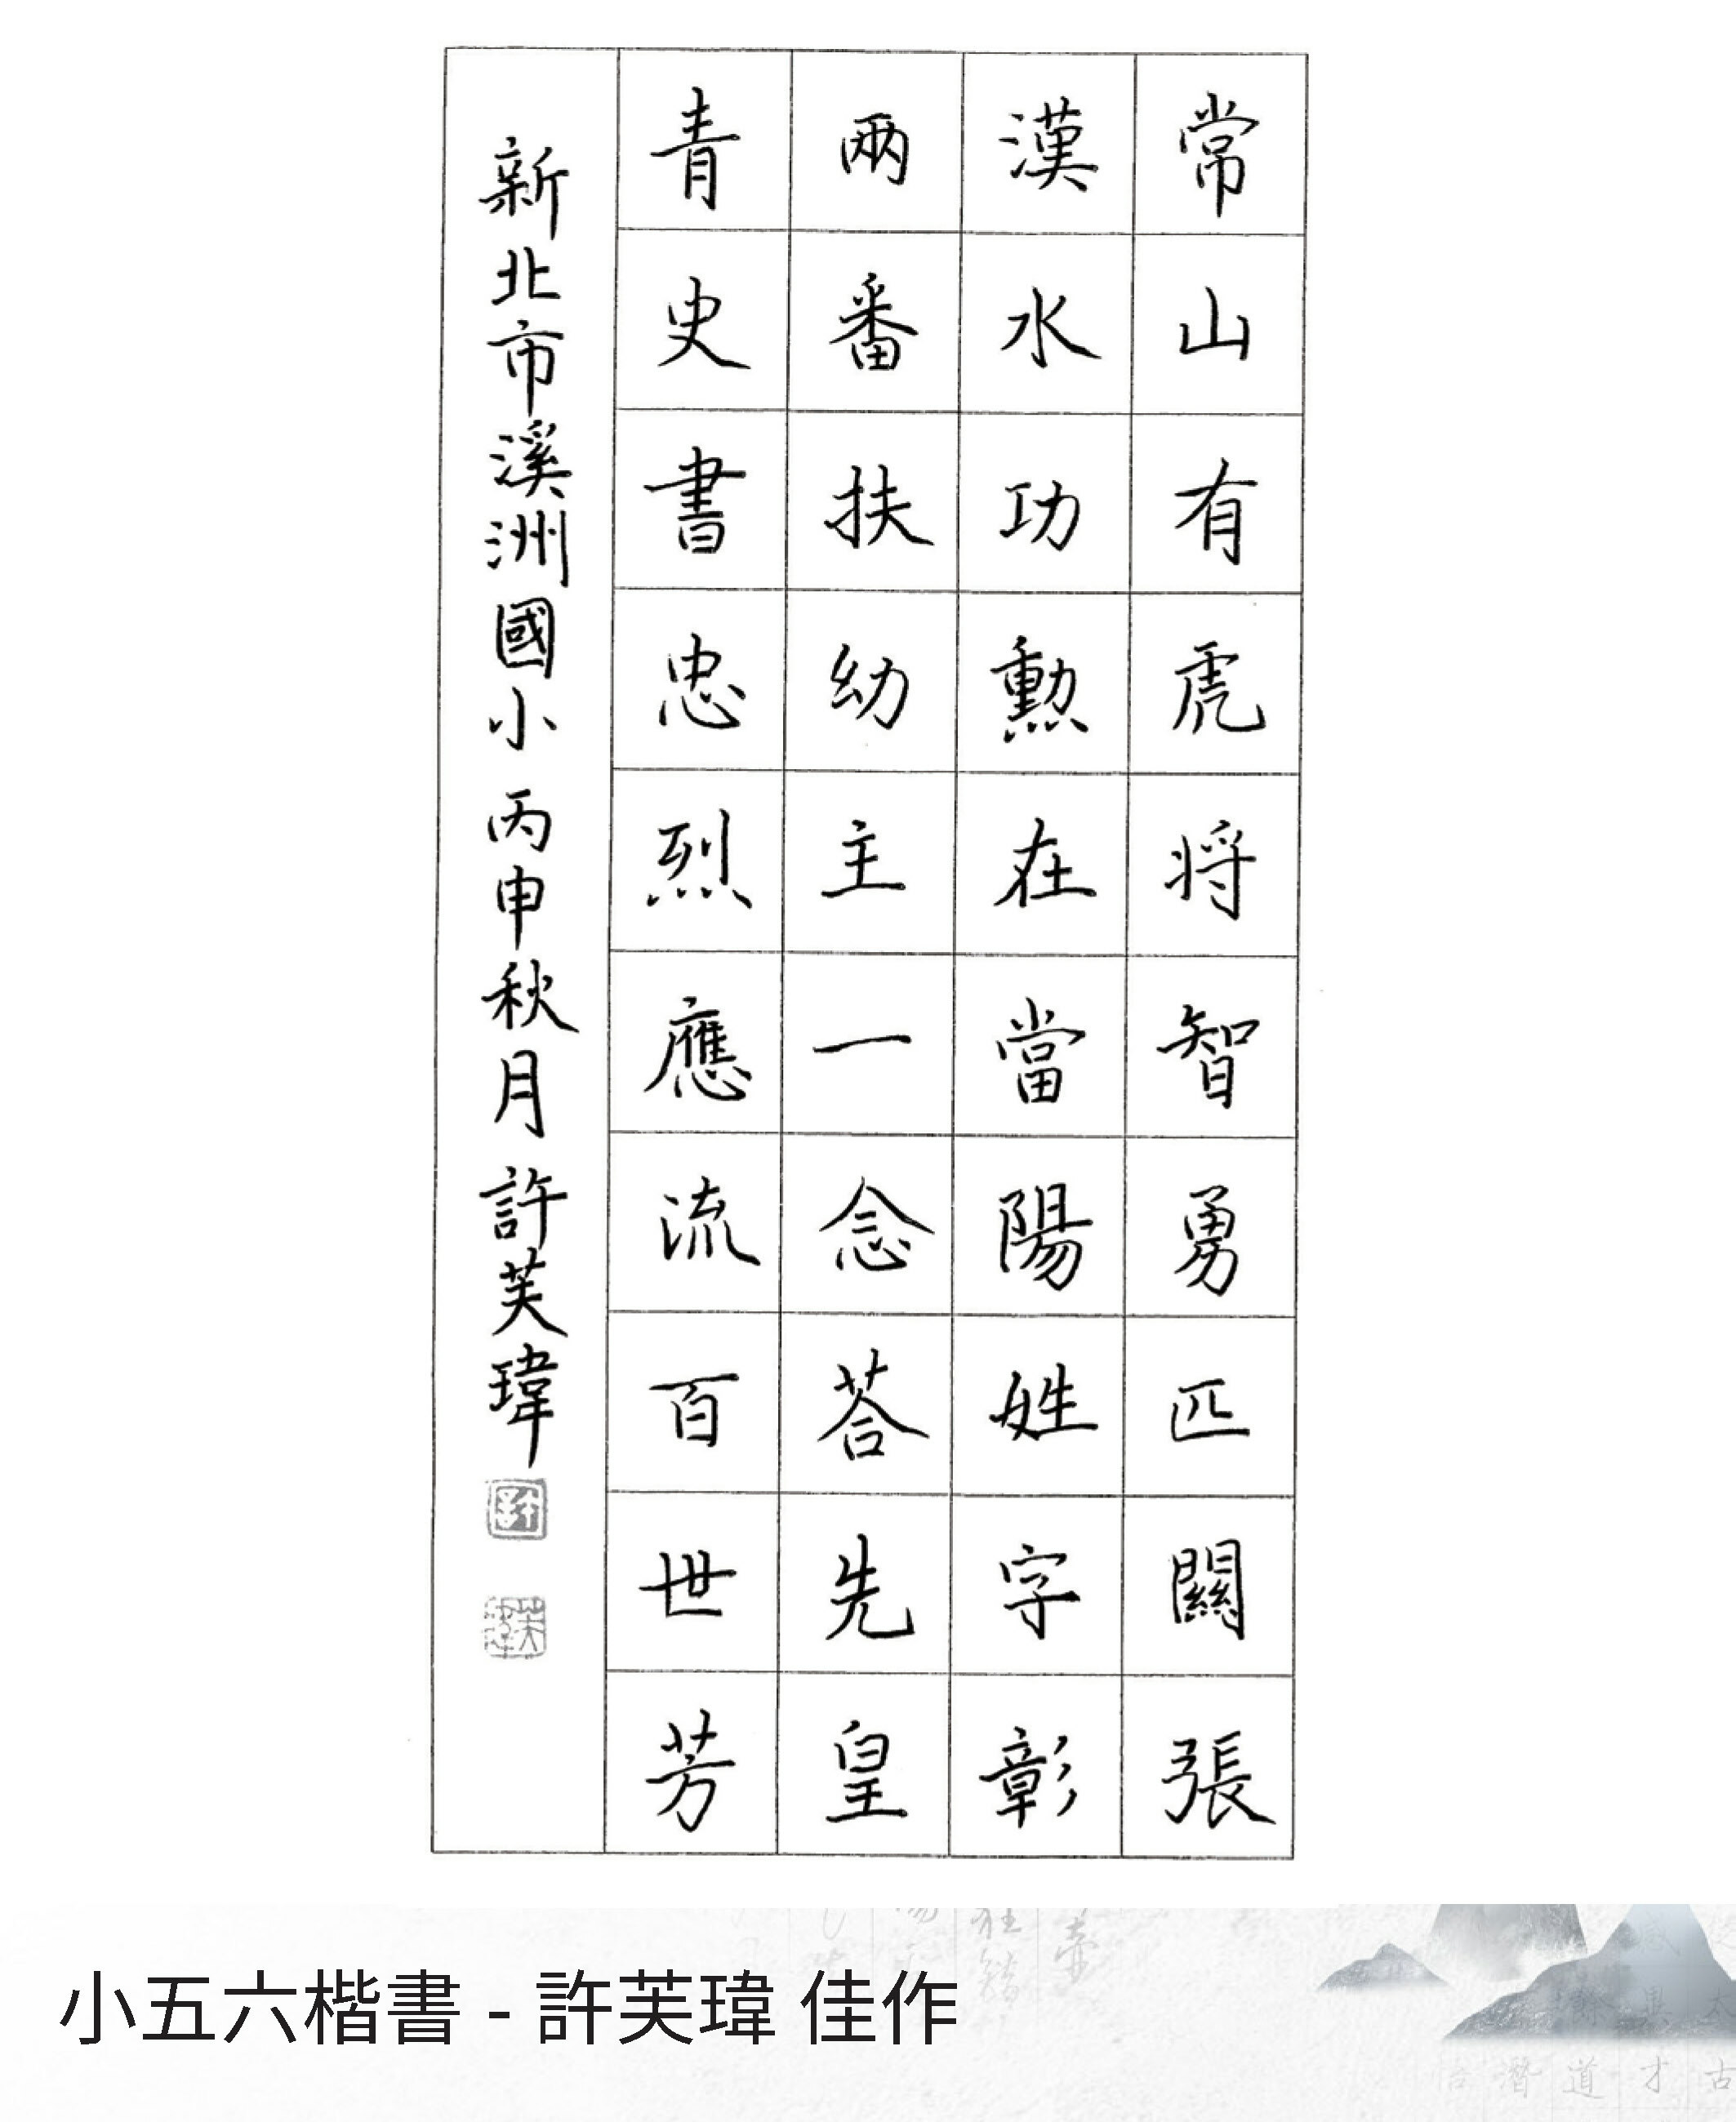 常山有虎將智勇匹關張
漢水功勲在當陽姓字彰
兩番扶幼主一念荅先皇
青史書忠烈應流百世芳
新北市溪洲國小 丙申秋月 許芙瑋
許
芙瑋
小五六楷書 - 許芙瑋 佳作